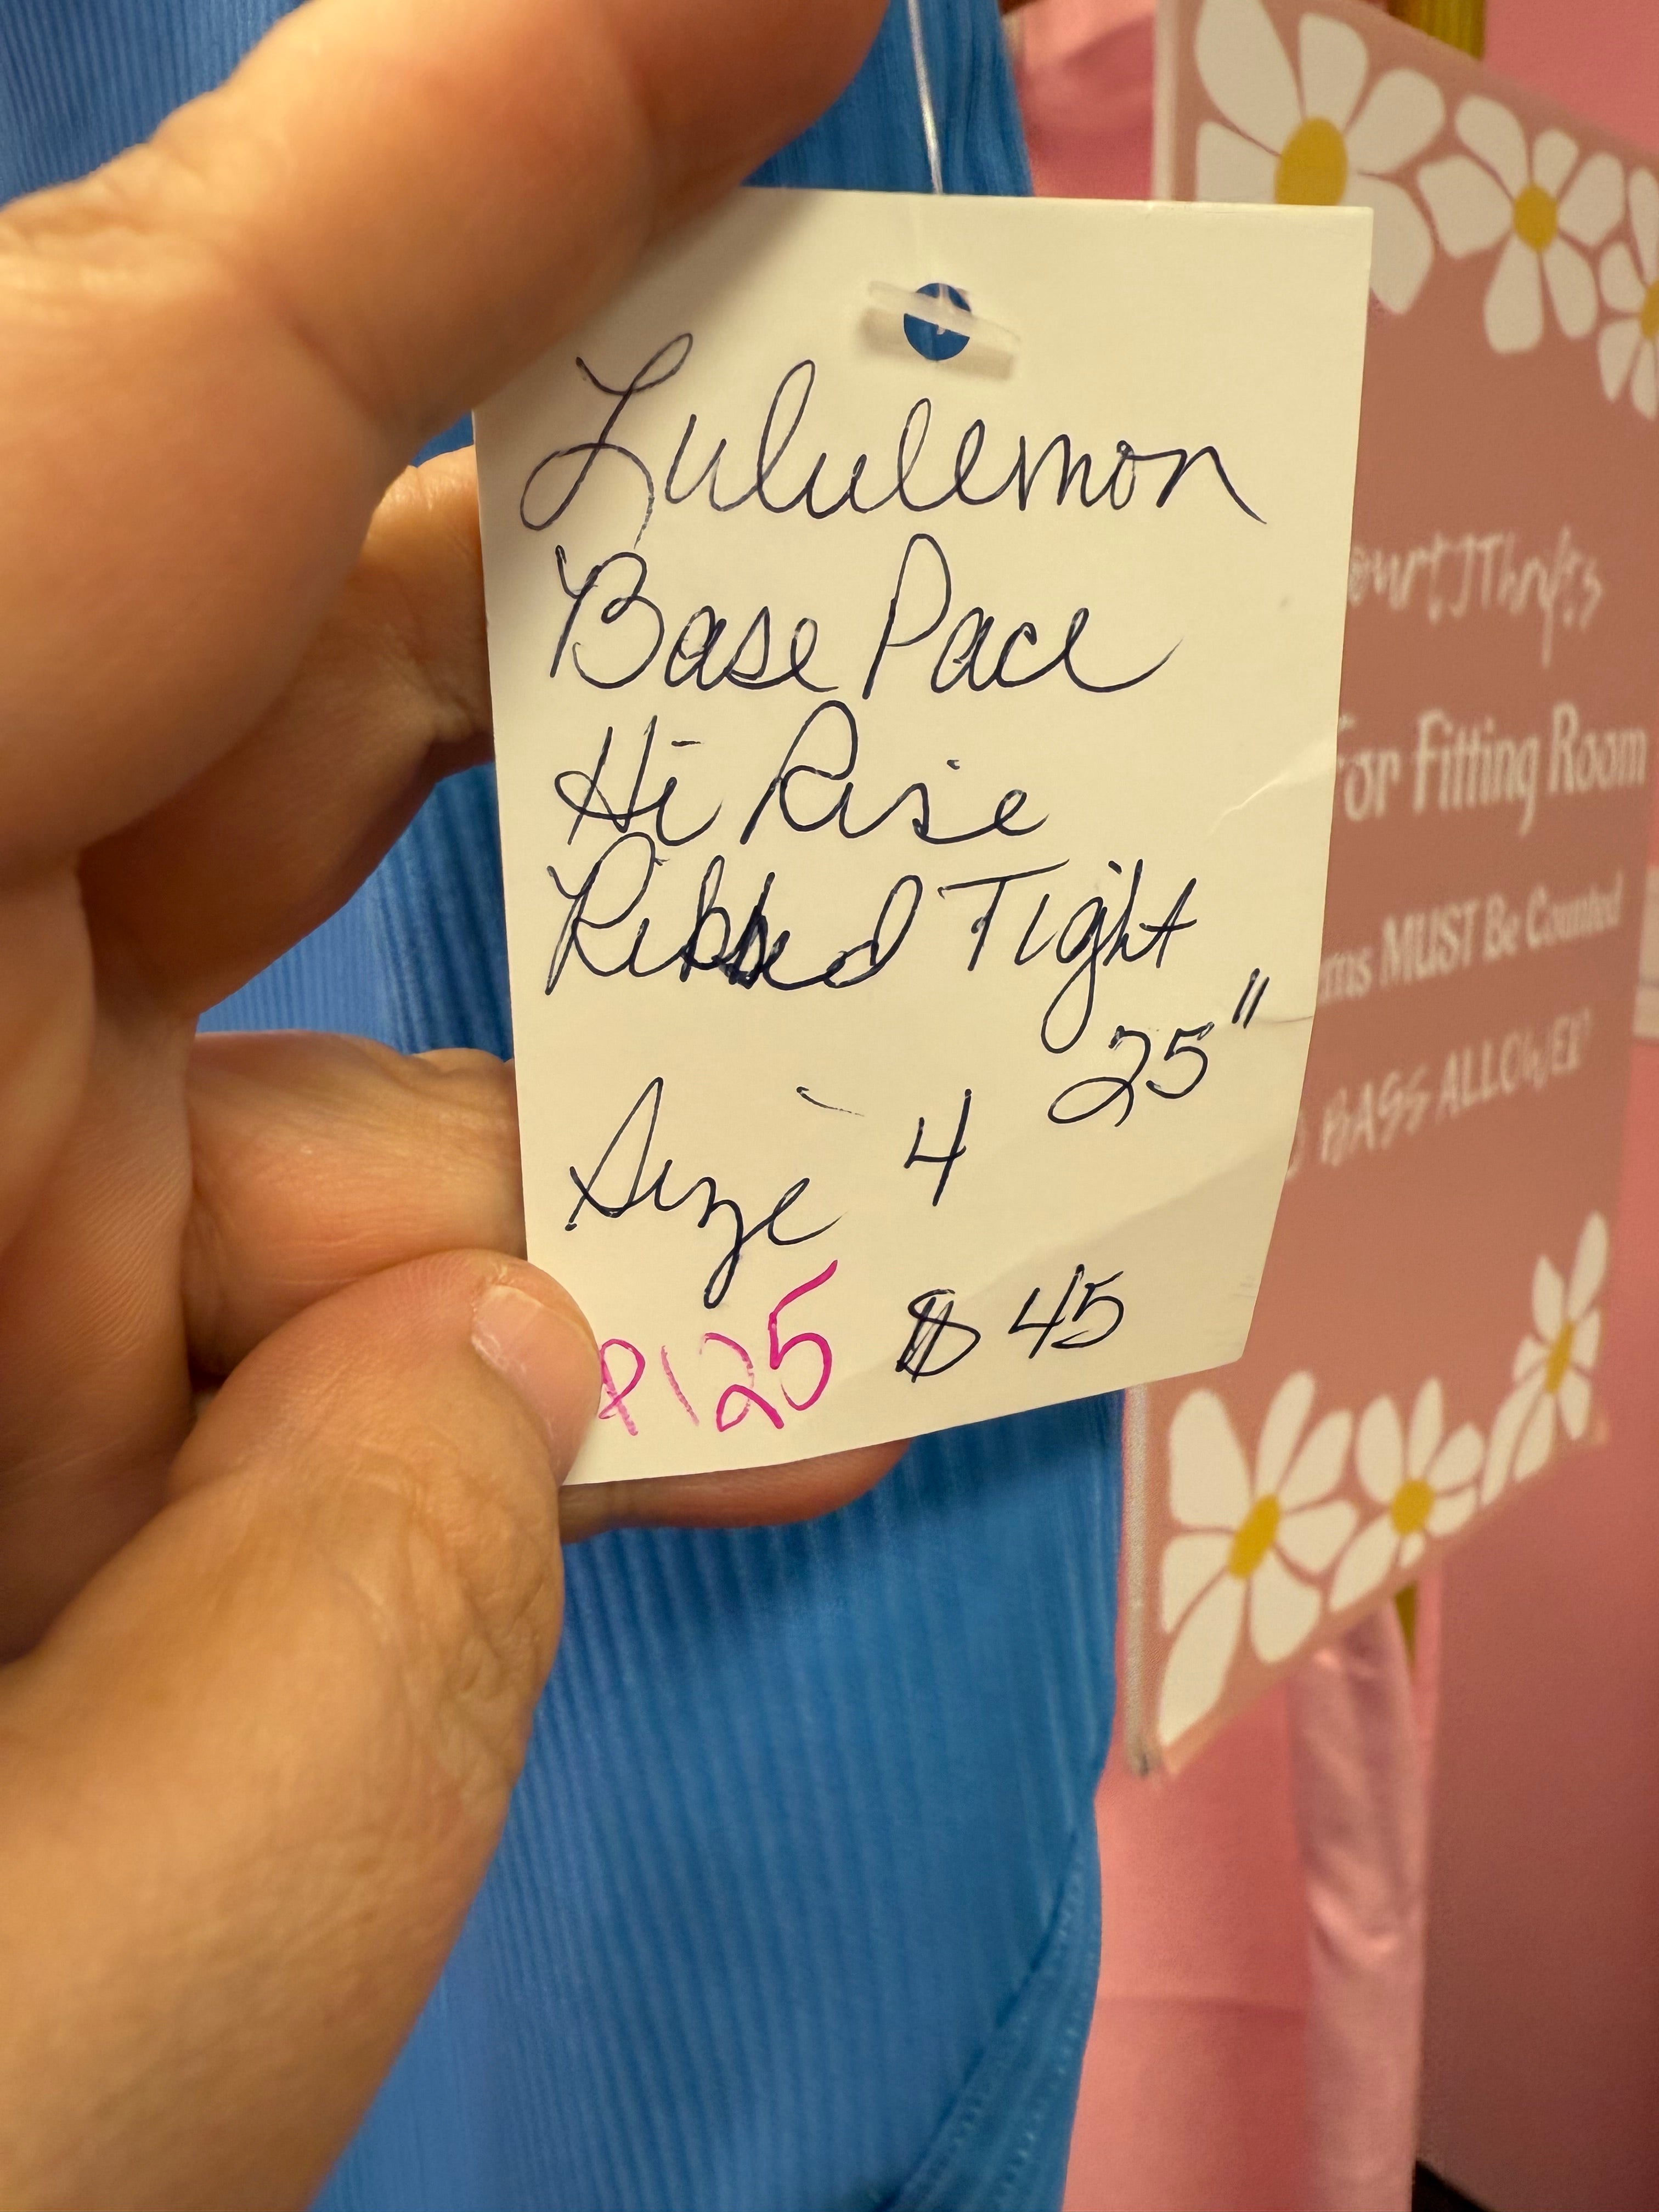 Lululemon
Base Pace
Hi Rise
Ribbed Tight
25"
Size 4
P125 $45
For Fitting Room
MUST Be Counted
BAGS ALLOWED